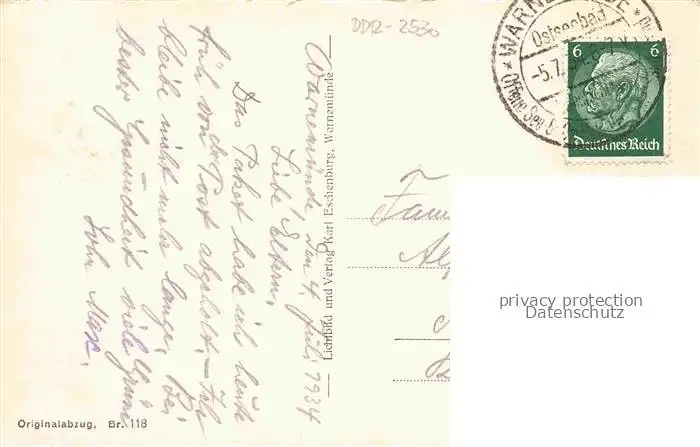 DDR-2530
WARNE
Ostseebad
-5.7.
Offene See
6 6
Deutsches Reich
Warnemünde, den 4. Juli 1934
Liebe Eltern,
Das Paket habe ich heute
früh von der Post abgeholt. - Ich
bleibe nicht mehr lange. Bei
bester Gesundheit viele Grüsse
Sohn Max.
Lichtbild und Verlag Karl Eschenburg, Warnemünde
Fam
privacy protection
Datenschutz
Originalabzug, Br. 118